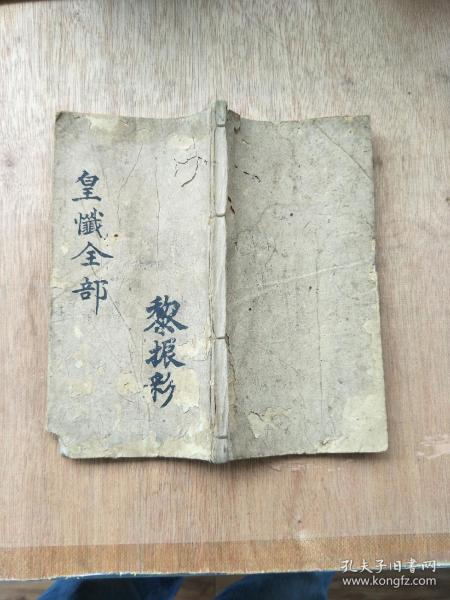 皇懺全部
黎振彩
孔夫子旧书网
www.kongfz.com